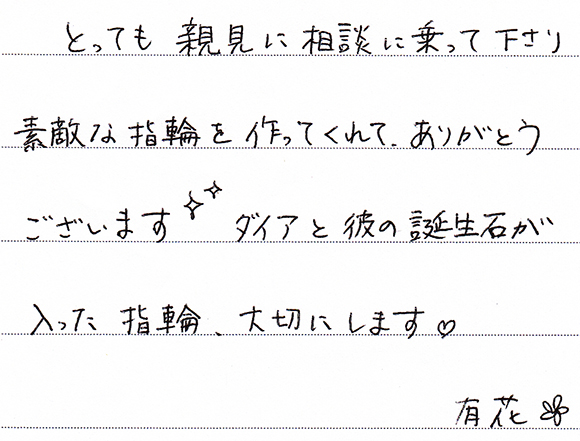 とっても 親見に 相談に乗って下さり
素敵な指輪を 作ってくれて、ありがとう
ございます✧✧ ダイアと彼の誕生石が
入った 指輪、大切にします♡
有花